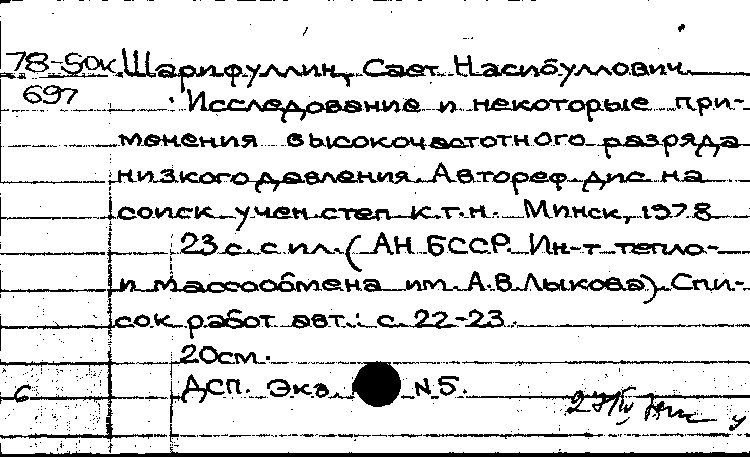 78-5ок Шарифуллин, Сает Насибуллович.
697 Исследование и некоторые при-
менения высокочастотного разряда
низкого давления. Автореф. дис. на
соиск. учен. степ. к.т.н. Минск, 1978.
23 с. с ил. (АН БССР. Ин-т тепло-
и массообмена им. А.В. Лыкова). Спи-
сок работ авт.: с. 22-23.
20см.
с ДСП. Экз. N5.